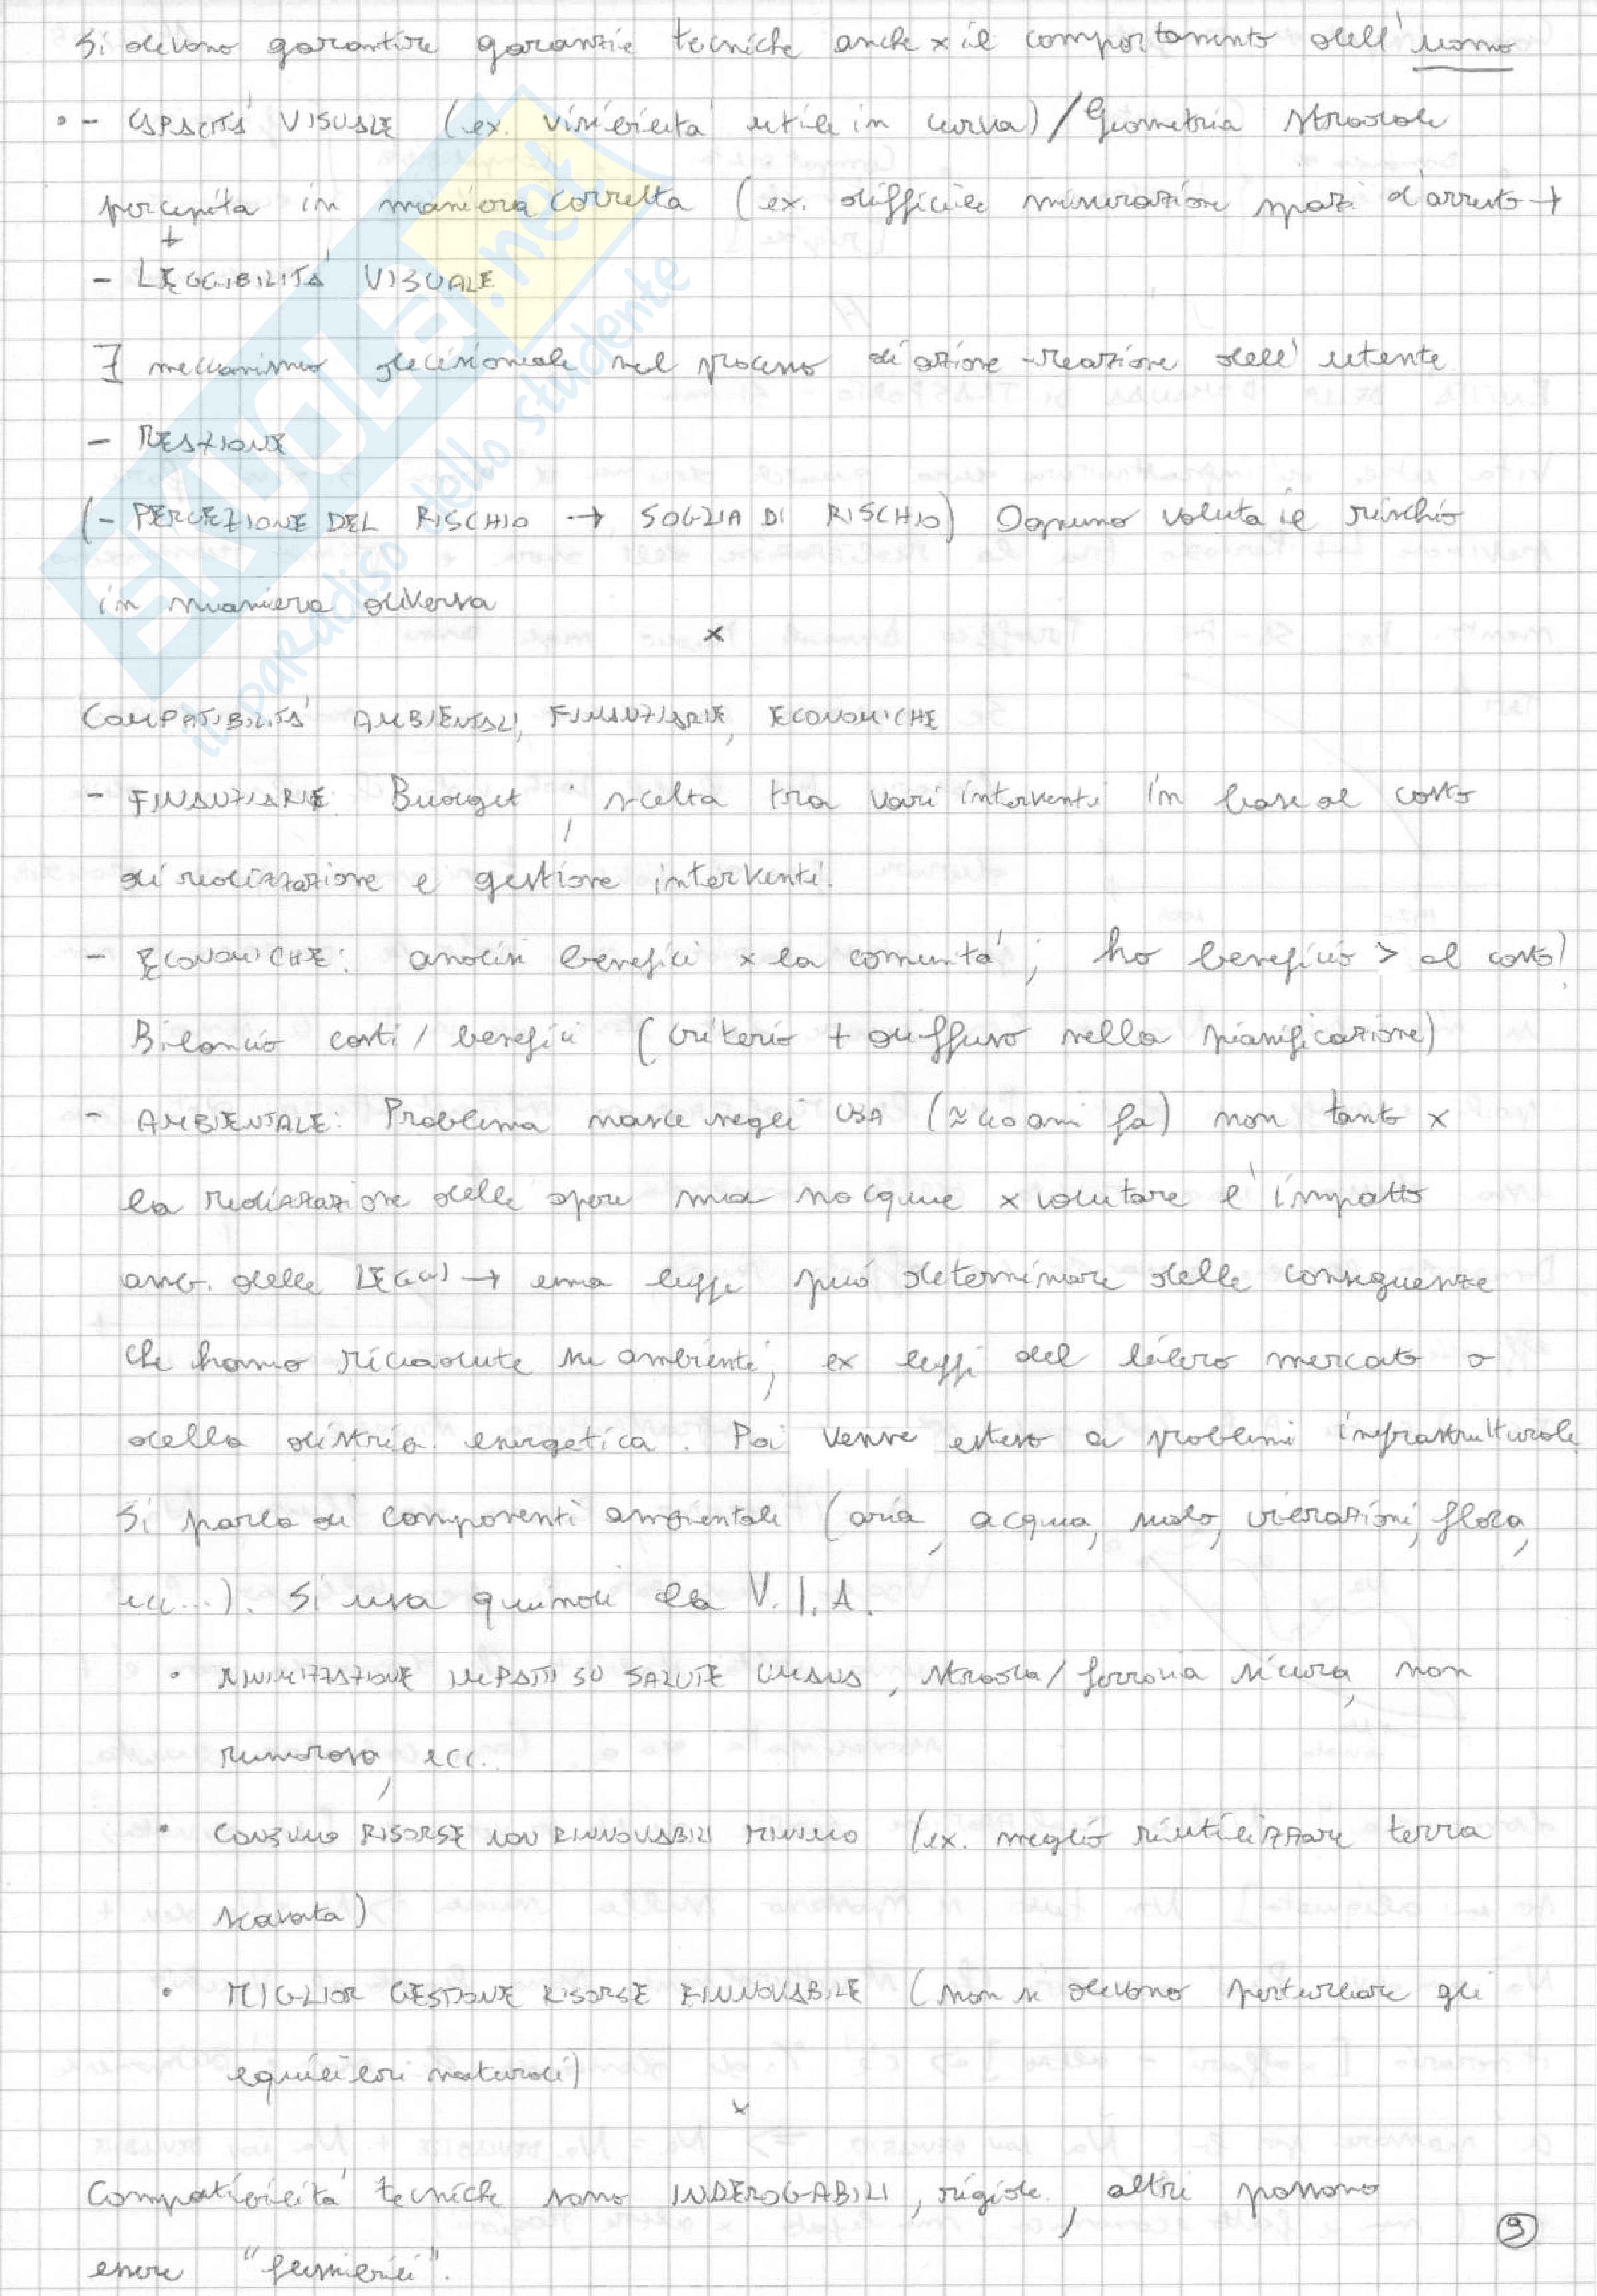 Si devono garantire garanzie tecniche anche x il comportamento dell'uomo
- CAPACITÀ VISUALE (ex. visibilità utile in curva) / Geometria stradale
percepita in maniera corretta (ex. difficile misurazione spazi d'arresto →
+
- LEGGIBILITÀ VISUALE
∃ meccanismo decisionale nel processo di azione-reazione dell'utente
- REAZIONE
(- PERCEZIONE DEL RISCHIO → SOGLIA DI RISCHIO) Ognuno valuta il rischio
in maniera diversa
x
COMPATIBILITÀ AMBIENTALI, FINANZIARIE, ECONOMICHE
- FINANZIARIE: Budget; scelta tra vari interventi in base al costo
di realizzazione e gestione interventi.
- ECONOMICHE: analisi benefici x la comunità; ho beneficio > al costo?
Bilancio costi / benefici (criterio + diffuso nella pianificazione)
- AMBIENTALE: Problema nasce negli USA (≈ 40 anni fa) non tanto x
la realizzazione delle opere ma nacque x valutare l'impatto
amb. delle LEGGI → una legge può determinare delle conseguenze
che hanno ricadute su ambiente; ex leggi del libero mercato o
della distrib. energetica. Poi venne esteso a problemi infrastrutturali.
Si parla di componenti ambientali (aria, acqua, suolo, vibrazioni, flora,
ecc...). Si usa quindi la V.I.A.
• MINIMIZZAZIONE IMPATTI SU SALUTE UMANA, strada/ferrovia sicura, non
rumorosa, ecc..
• CONSUMO RISORSE NON RINNOVABILI MINIMO (ex. meglio riutilizzare terra
scavata)
• MIGLIOR GESTIONE RISORSE RINNOVABILE (non si devono perturbare gli
equilibri naturali)
x
Compatibilità tecniche sono INDEROGABILI, rigide, altri possono
essere "flessibili".
9
SKUOLA.net
il paradiso dello studente